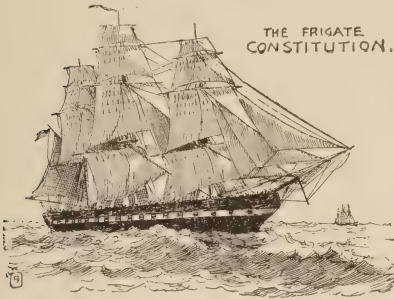 THE FRIGATE
CONSTITUTION.